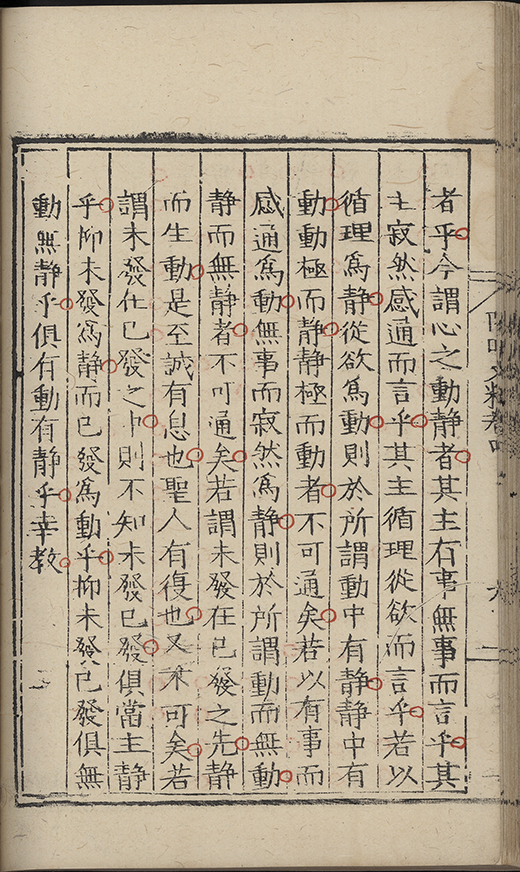 者乎今謂心之動靜者其主有事無事而言乎其
主寂然感通而言乎其主循理從欲而言乎若以
循理爲靜從欲爲動則於所謂動中有靜靜中有
動動極而靜靜極而動者不可通矣若以有事而
感通爲動無事而寂然爲靜則於所謂動而無動
靜而無靜者不可通矣若謂未發在已發之先靜
而生動是至誠有息也聖人有復也又不可矣若
謂未發在已發之中則不知未發已發俱當主靜
乎抑未發爲靜而已發爲動乎抑未發已發俱無
動無靜乎俱有動有靜乎幸教